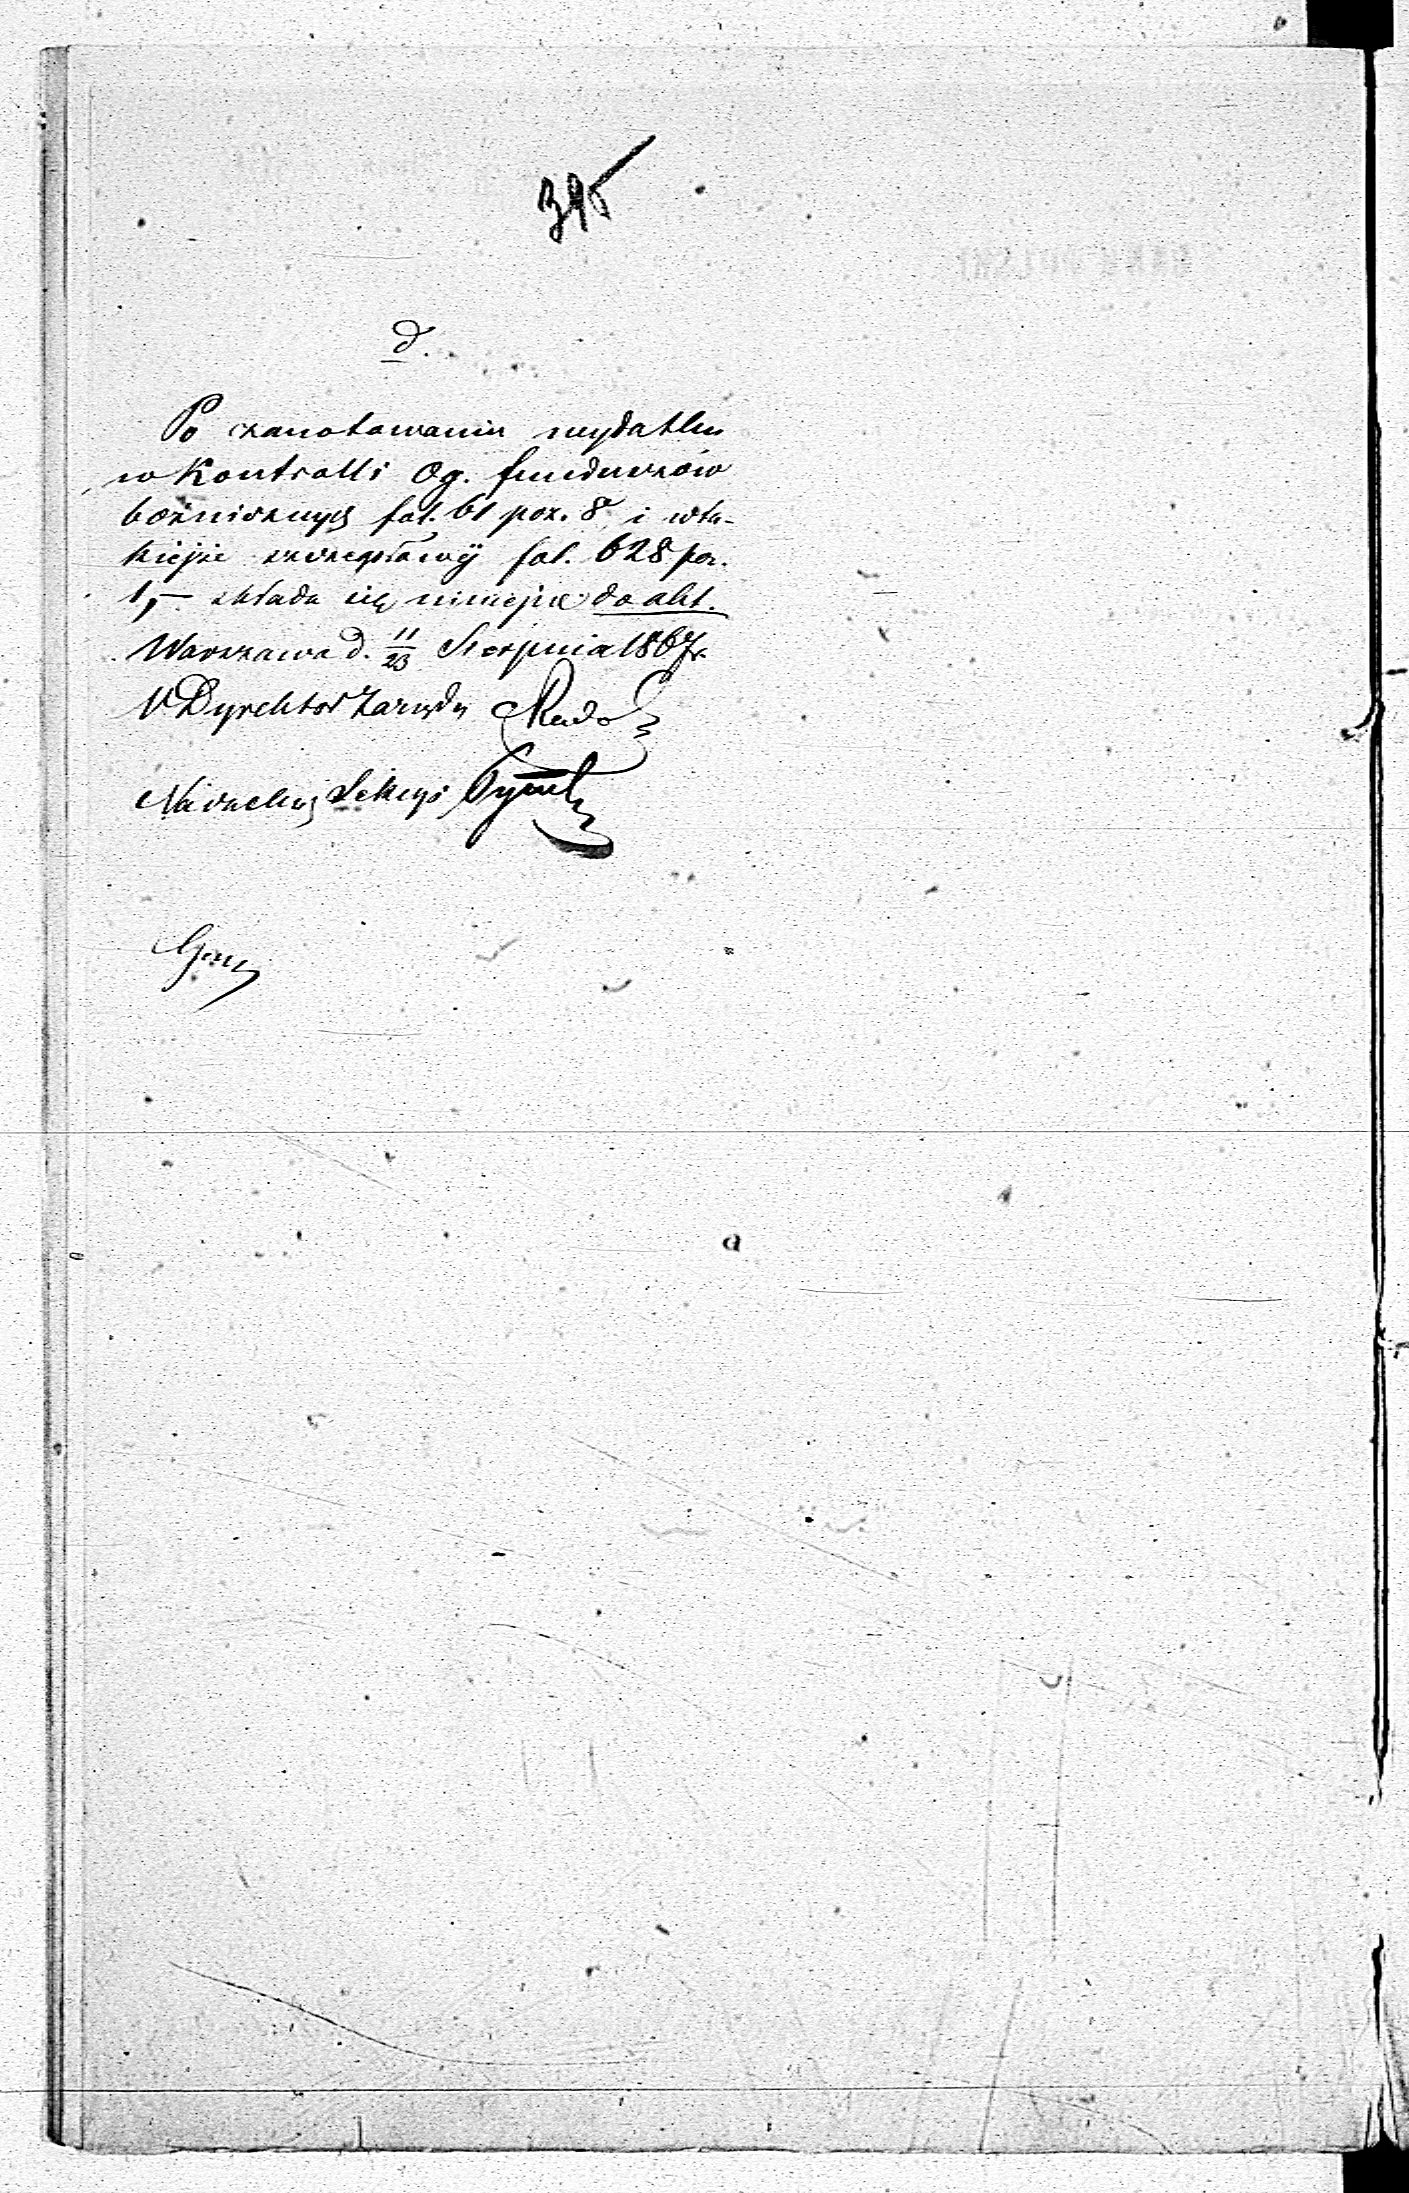 395
d.
Po zanotowaniu wydatku
w Kontrolli Og. funduszów
bożniczych fol. 61 poz. 8 i w ta-
kiejże szczegółowéj fol. 628 poz.
1, – składa się niniejsze do akt.
Warszawa d. 11/23 Sierpnia 1867 r.
V Dyrektor Zarządu
Naczelnik Sekcyi
BANK POLSKI